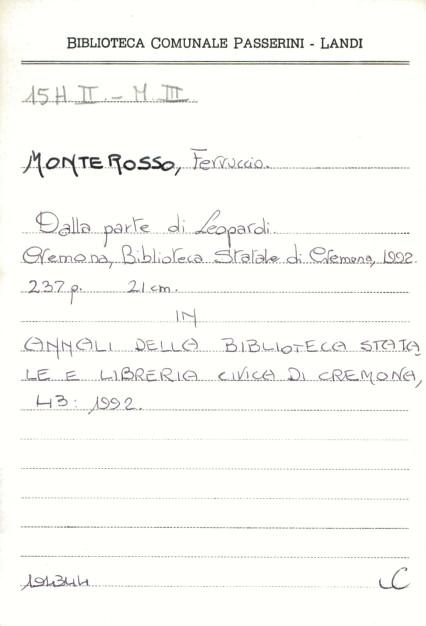 BIBLIOTECA COMUNALE PASSERINI - LANDI
15H II. - M. III
MONTEROSSO, Ferruccio.
Dalla parte di Leopardi.
Cremona, Biblioteca Statale di Cremona, 1992.
237 p. 21 cm.
IN
ANNALI DELLA BIBLIOTECA STATA
LE E LIBRERIA CIVICA DI CREMONA,
43: 1992.
194344